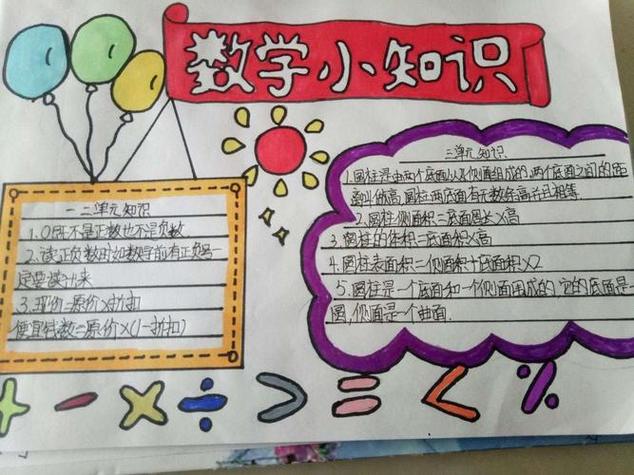 数学小知识
一二单元知识
1.0既不是正数也不是负数
2.读正负数时如数字前有正负号一
定要读出来
3.现价=原价×折扣
便宜钱数=原价×(1-折扣)
三单元知识
1.圆柱是由两个底面以及侧面组成的,两个底面之间的距
离叫做高,圆柱两底面有无数条高并且相等.
2.圆柱侧面积=底面周长×高
3.圆柱的体积=底面积×高
4.圆柱表面积=侧面积+底面积×2
5.圆柱是一个底面和一个侧面围成的,它的底面是一
圆,侧面是一个曲面.
+ - × ÷ > = < %